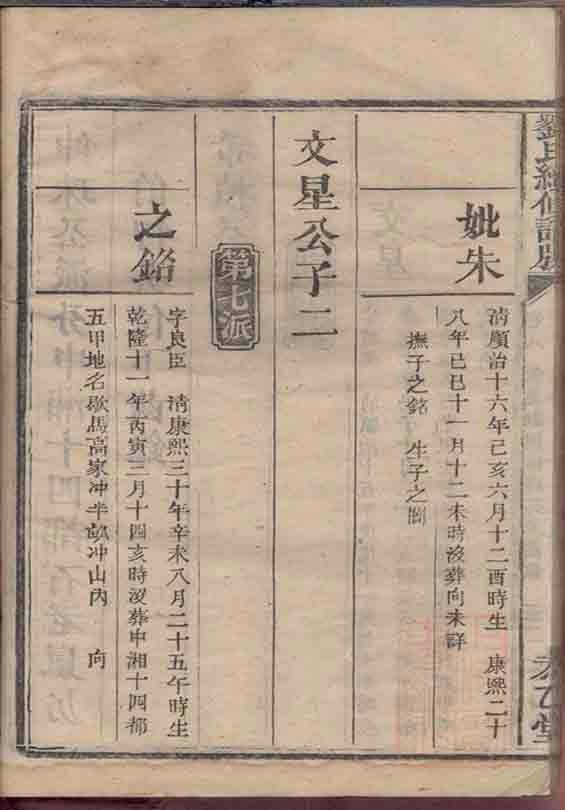 劉氏續修譜房
乙堂
妣朱
清順治十六年己亥六月十二酉時生 康熙二十
八年己巳十一月十二未時沒葬向未詳
撫子之銘 生子之
文星公子二
第七派
之銘
字良臣 清康熙三十年辛未八月二十五午時生
乾隆十一年丙寅三月十四亥時沒葬中湘十四都
五甲地名歇馬高家冲半冲山內 向